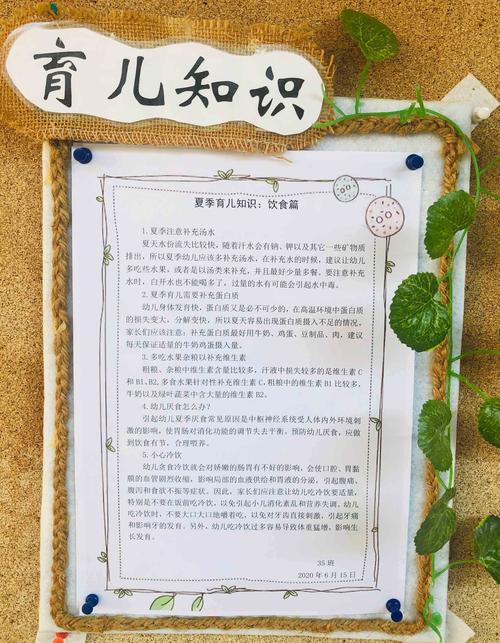 育儿知识
夏季育儿知识：饮食篇
1.夏季注意补充汤水
夏天水份流失比较快，随着汗水会有钠、钾以及其它一些矿物质
排出，所以夏季幼儿应该多补充汤水，在补充水的时候，建议让幼儿
多吃些水果，或者是以汤类来补充，并且最好少量多餐。要注意补充
水时，白开水也不能喝多了，过量的水有可能会引起水中毒。
2.夏季育儿需要补充蛋白质
幼儿身体发育快，蛋白质又是必不可少的，在高温环境中蛋白质
的损失变大，分解变快，所以夏天容易出现蛋白质摄入不足的情况。
家长们应该注意：补充蛋白质最好用牛奶、鸡蛋、豆制品、肉，建议
每天保证适量的牛奶鸡蛋摄入量。
3.多吃水果杂粮以补充维生素
粗粮、杂粮中维生素含量比较多，汗液中损失较多的是维生素 C
和 B1、B2，多食水果针对性补充维生素 C，粗粮中的维生素 B1 比较多，
牛奶以及绿叶蔬菜中含大量的维生素 B2。
4.幼儿厌食怎么办？
引起幼儿夏季厌食常见原因是中枢神经系统受人体内外环境刺
激的影响，使胃肠对消化功能的调节失去平衡。预防幼儿厌食，应做
到饮食有节、合理喂养。
5.小心冷饮
幼儿贪食冷饮就会对娇嫩的肠胃有不好的影响，会使口腔、胃黏
膜的血管剧烈收缩，影响局部的血液供给和胃液的分泌，引起腹痛、
腹泻和食欲不振等症状。因此，家长们应注意让幼儿吃冷饮要适量，
特别是不要在饭前吃冷饮，以免引起小儿消化紊乱和营养失调。幼儿
吃冷饮时，不要大口大口地嚼着吃，以免对牙齿直接刺激，引起牙痛
和影响牙的发育。另外，幼儿吃冷饮过多容易导致体重猛增，影响生
长发育。
35 班
2020 年 6 月 15 日